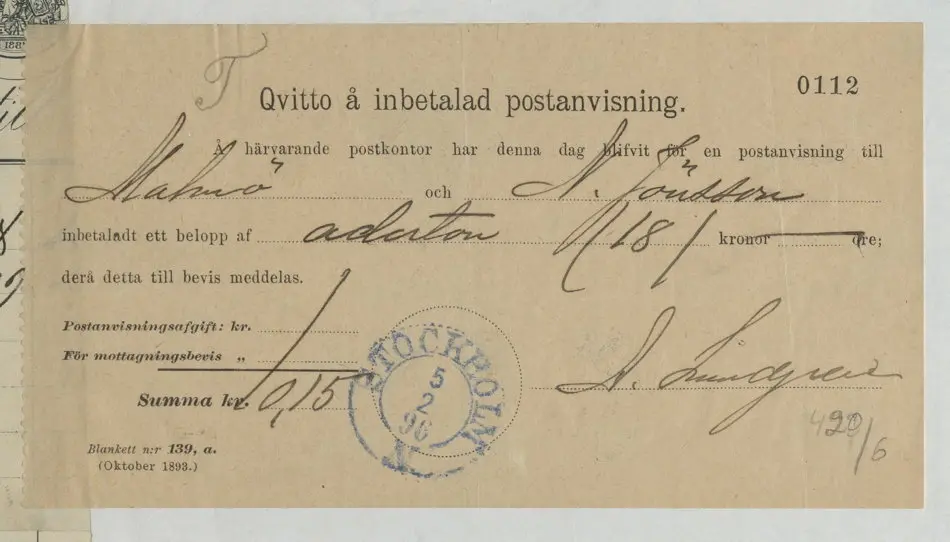 188
T
0112
Qvitto å inbetalad postanvisning.
Å härvarande postkontor har denna dag blifvit för en postanvisning till
Malmö och N. Jönsson
inbetaladt ett belopp af aderton /18/ kronor öre;
derå detta till bevis meddelas.
Postanvisningsafgift: kr.
För mottagningsbevis „
Summa kr. 0,15
STOCKHOLM
5
2
96
N
A. Lundgren
420/6
Blankett n:r 139, a.
(Oktober 1893.)